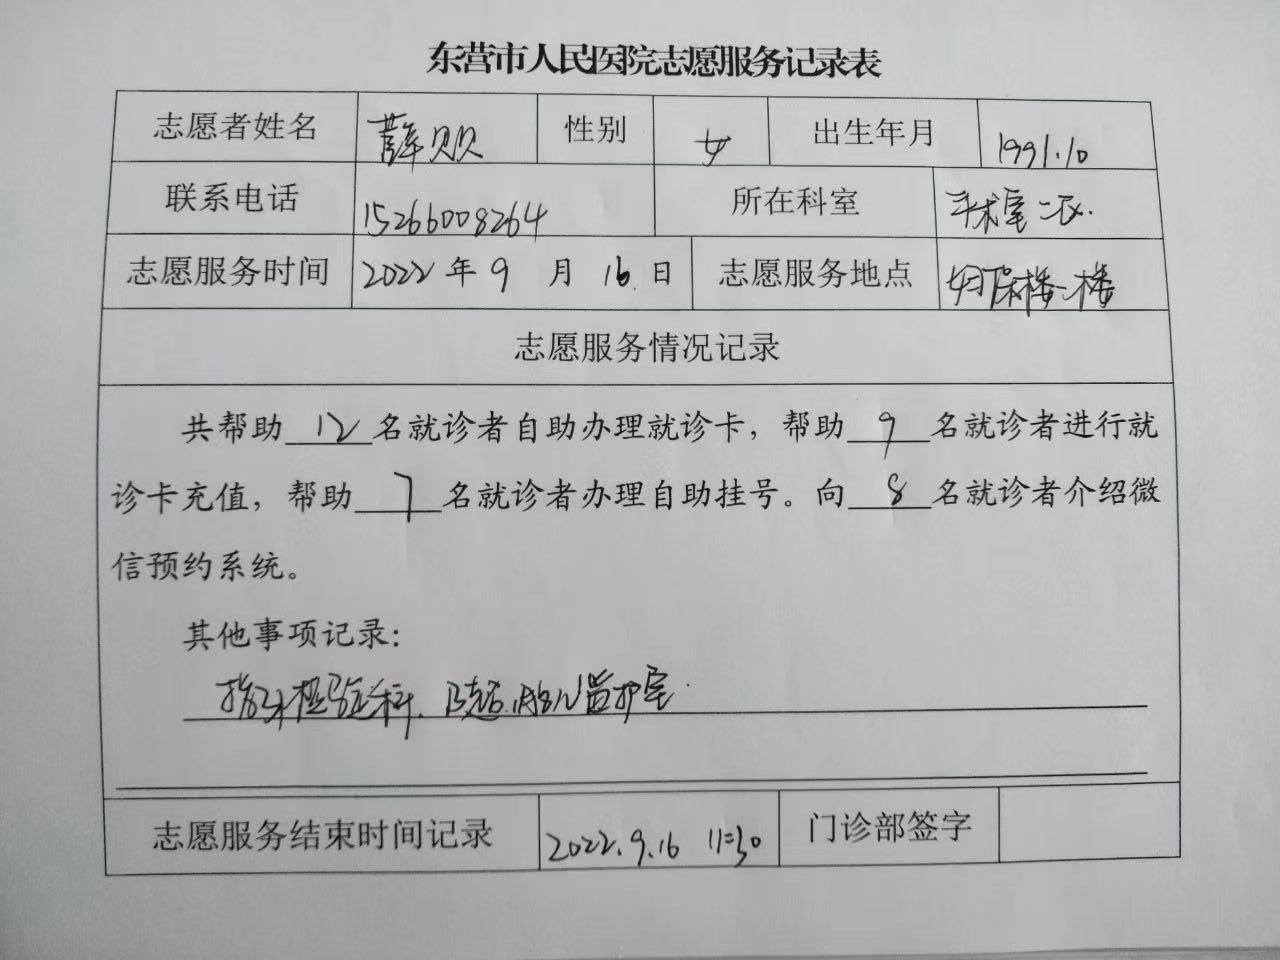 东营市人民医院志愿服务记录表
志愿者姓名 薛贝贝 性别 女 出生年月 1991.10
联系电话 15266008264 所在科室 手术室二区.
志愿服务时间 2022年9月16日 志愿服务地点 妇保楼二楼
志愿服务情况记录
共帮助12名就诊者自助办理就诊卡，帮助9名就诊者进行就
诊卡充值，帮助7名就诊者办理自助挂号。向8名就诊者介绍微
信预约系统。
其他事项记录：
指引检验科、B超、胎心监护室.
志愿服务结束时间记录 2022.9.16 11:30 门诊部签字